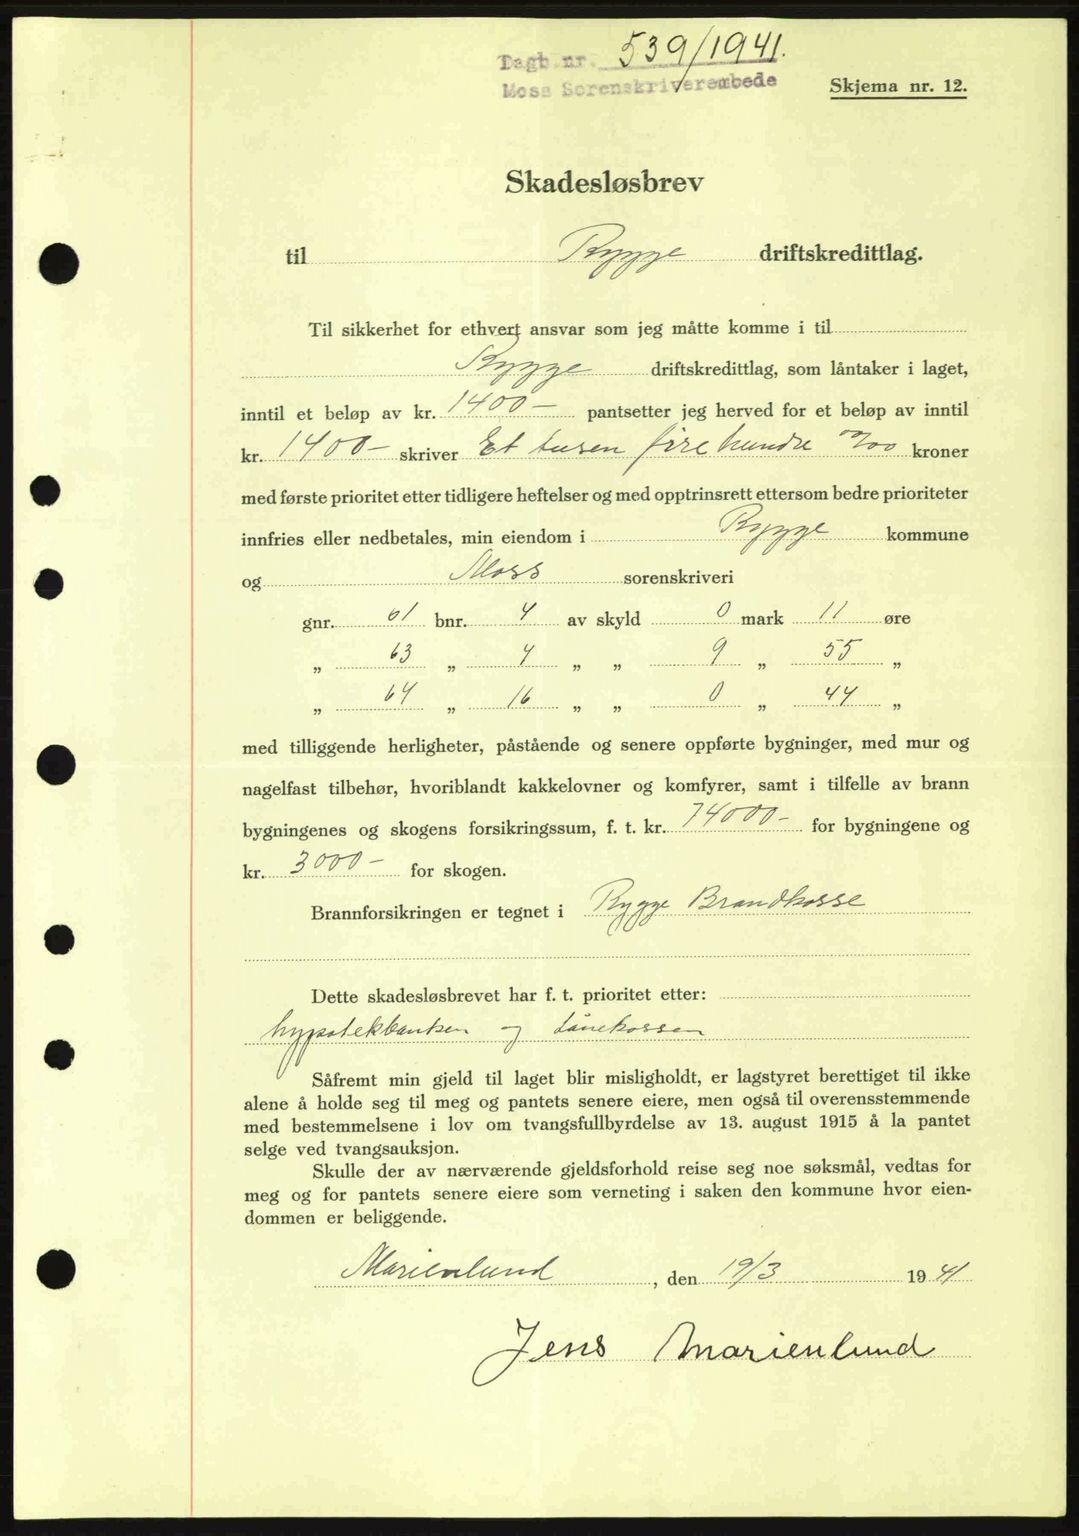 Dagb. nr. 539/1941.
Moss Sorenskriverembede
Skjema nr. 12.
Skadesløsbrev
til Rygge driftskredittlag.
Til sikkerhet for ethvert ansvar som jeg måtte komme i til
Rygge driftskredittlag, som låntaker i laget,
inntil et beløp av kr. 1400- pantsetter jeg herved for et beløp av inntil
kr. 1400- skriver Et tusen fire hundre 00/00 kroner
med første prioritet etter tidligere heftelser og med opptrinsrett ettersom bedre prioriteter
innfries eller nedbetales, min eiendom i Rygge kommune
og Moss sorenskriveri
gnr. 61 bnr. 4 av skyld 0 mark 11 øre
„ 63 „ 4 „ „ 9 „ 55 „
„ 64 „ 16 „ „ 0 „ 44 „
med tilliggende herligheter, påstående og senere oppførte bygninger, med mur og
nagelfast tilbehør, hvoriblandt kakkelovner og komfyrer, samt i tilfelle av brann
bygningenes og skogens forsikringssum, f. t. kr. 74000- for bygningene og
kr. 3000- for skogen.
Brannforsikringen er tegnet i Rygge Brandkasse
Dette skadesløsbrevet har f. t. prioritet etter:
hypotekbanken og Lånekassen
Såfremt min gjeld til laget blir misligholdt, er lagstyret berettiget til ikke
alene å holde seg til meg og pantets senere eiere, men også til overensstemmende
med bestemmelsene i lov om tvangsfullbyrdelse av 13. august 1915 å la pantet
selge ved tvangsauksjon.
Skulle der av nærværende gjeldsforhold reise seg noe søksmål, vedtas for
meg og for pantets senere eiere som verneting i saken den kommune hvor eien-
dommen er beliggende.
Marienlund, den 19/3 1941
Jens Marienlund